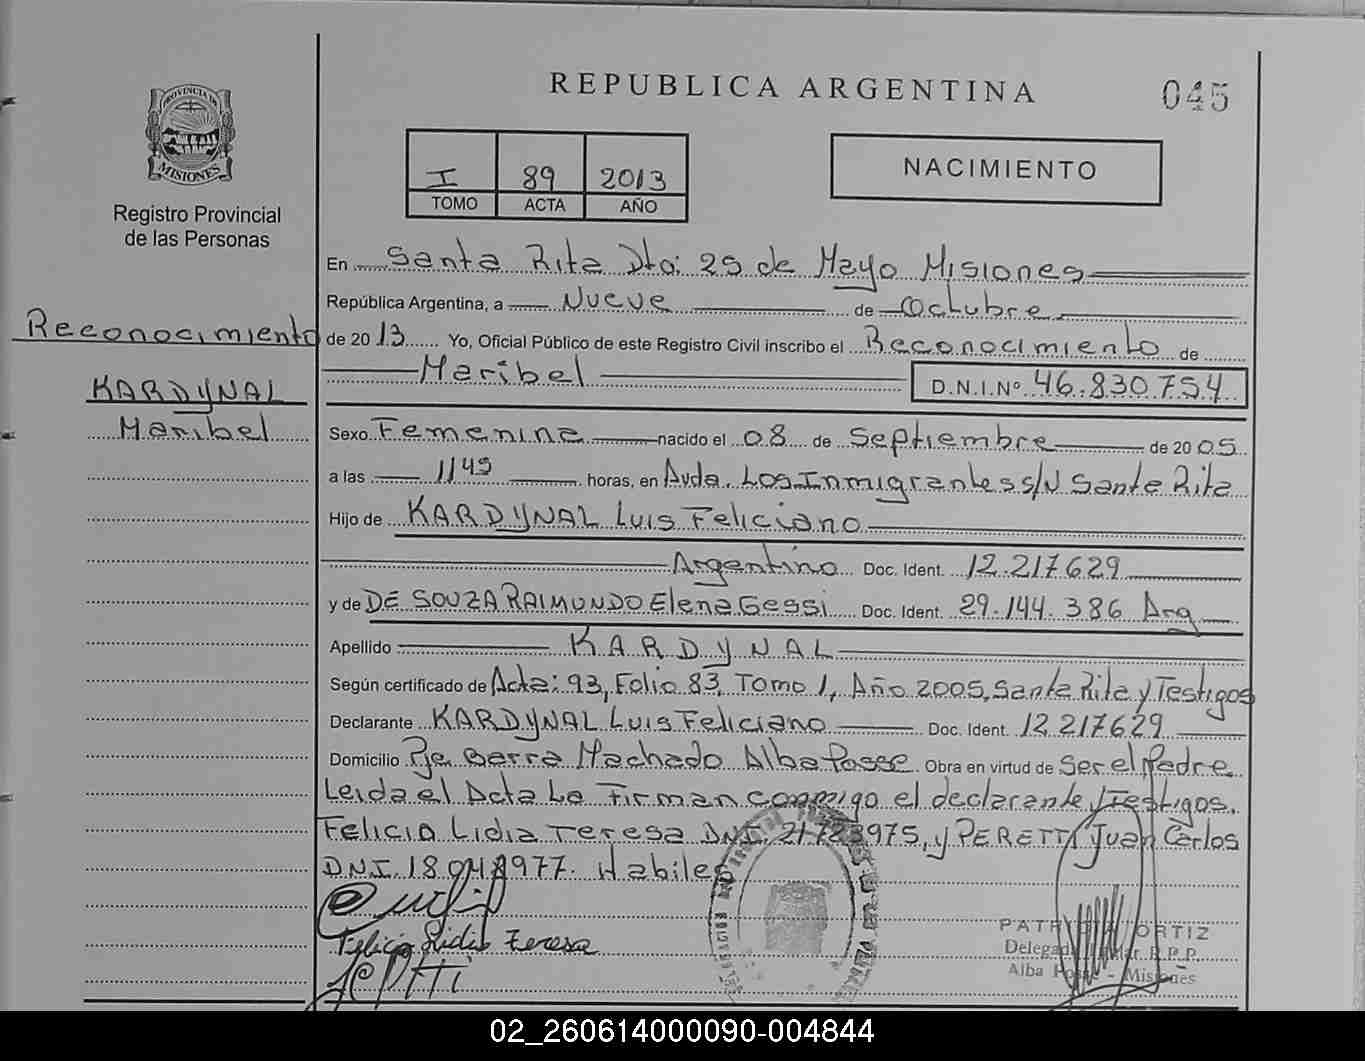 REPUBLICA ARGENTINA
045
PROVINCIA DE
MISIONES
Registro Provincial
de las Personas
I 89 2013
TOMO ACTA AÑO
NACIMIENTO
En Santa Rita Dto: 25 de Mayo Misiones
República Argentina, a Nueve de Octubre
Reconocimiento
de 2013 Yo, Oficial Público de este Registro Civil inscribo el Reconocimiento de
Maribel
D.N.I.Nº 46.830.754
KARDYNAL
Maribel
Sexo Femenina nacido el 08 de Septiembre de 2005
a las 1145 horas, en Avda. Los Inmigrantes s/N Santa Rita
Hijo de KARDYNAL Luis Feliciano
Argentino Doc. Ident. 12.217629
y de DE SOUZA RAIMUNDO Elena Gessi Doc. Ident. 29.144.386 Arg
Apellido KARDYNAL
Según certificado de Acta: 93, Folio 83, Tomo 1, Año 2005, Santa Rita y Testigos
Declarante KARDYNAL Luis Feliciano Doc. Ident. 12.217629
Domicilio Pje. Barra Machado Alba Posse. Obra en virtud de Ser el Padre
Leida el Acta La Firman conmigo el declarante y Testigos.
Felicio Lidia Teresa DNI. 21723975, y PERETTI Juan Carlos
D.N.I. 18.048977. Habiles
Felicio Lidia Teresa
ORTIZ
Alba Posse - Misiones
02_260614000090-004844